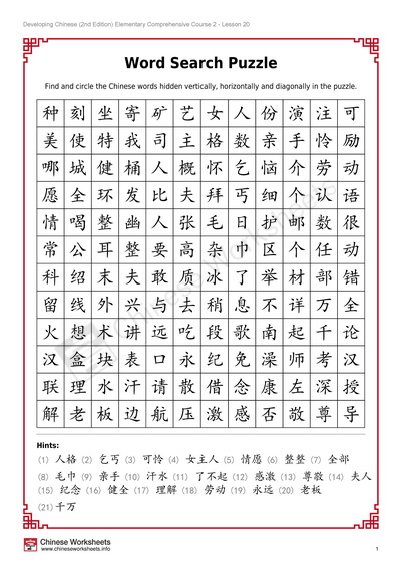 Developing Chinese (2nd Edition) Elementary Comprehensive Course 2 - Lesson 20
Word Search Puzzle
Find and circle the Chinese words hidden vertically, horizontally and diagonally in the puzzle.
种 刻 坐 寄 矿 艺 女 人 份 演 注 可
美 使 特 我 司 主 格 数 亲 手 怜 励
哪 城 健 桶 人 概 怀 乞 恼 介 劳 动
愿 全 环 发 比 夫 拜 丐 细 个 认 语
情 喝 整 幽 人 张 毛 日 护 邮 数 很
常 公 耳 整 要 高 杂 巾 区 个 任 动
科 绍 末 夫 敢 质 冰 了 举 材 部 错
留 线 外 兴 与 去 稍 息 不 详 万 全
火 想 术 讲 远 吃 段 歌 南 起 千 论
汉 盒 块 表 口 永 纪 免 澡 师 考 汉
联 理 水 汗 请 散 借 念 康 左 深 授
解 老 板 边 航 压 激 感 否 敬 尊 导
Hints:
(1) 人格 (2) 乞丐 (3) 可怜 (4) 女主人 (5) 情愿 (6) 整整 (7) 全部
(8) 毛巾 (9) 亲手 (10) 汗水 (11) 了不起 (12) 感激 (13) 尊敬 (14) 夫人
(15) 纪念 (16) 健全 (17) 理解 (18) 劳动 (19) 永远 (20) 老板
(21) 千万
Chinese Worksheets
www.chineseworksheets.info
1
Chinese Worksheets